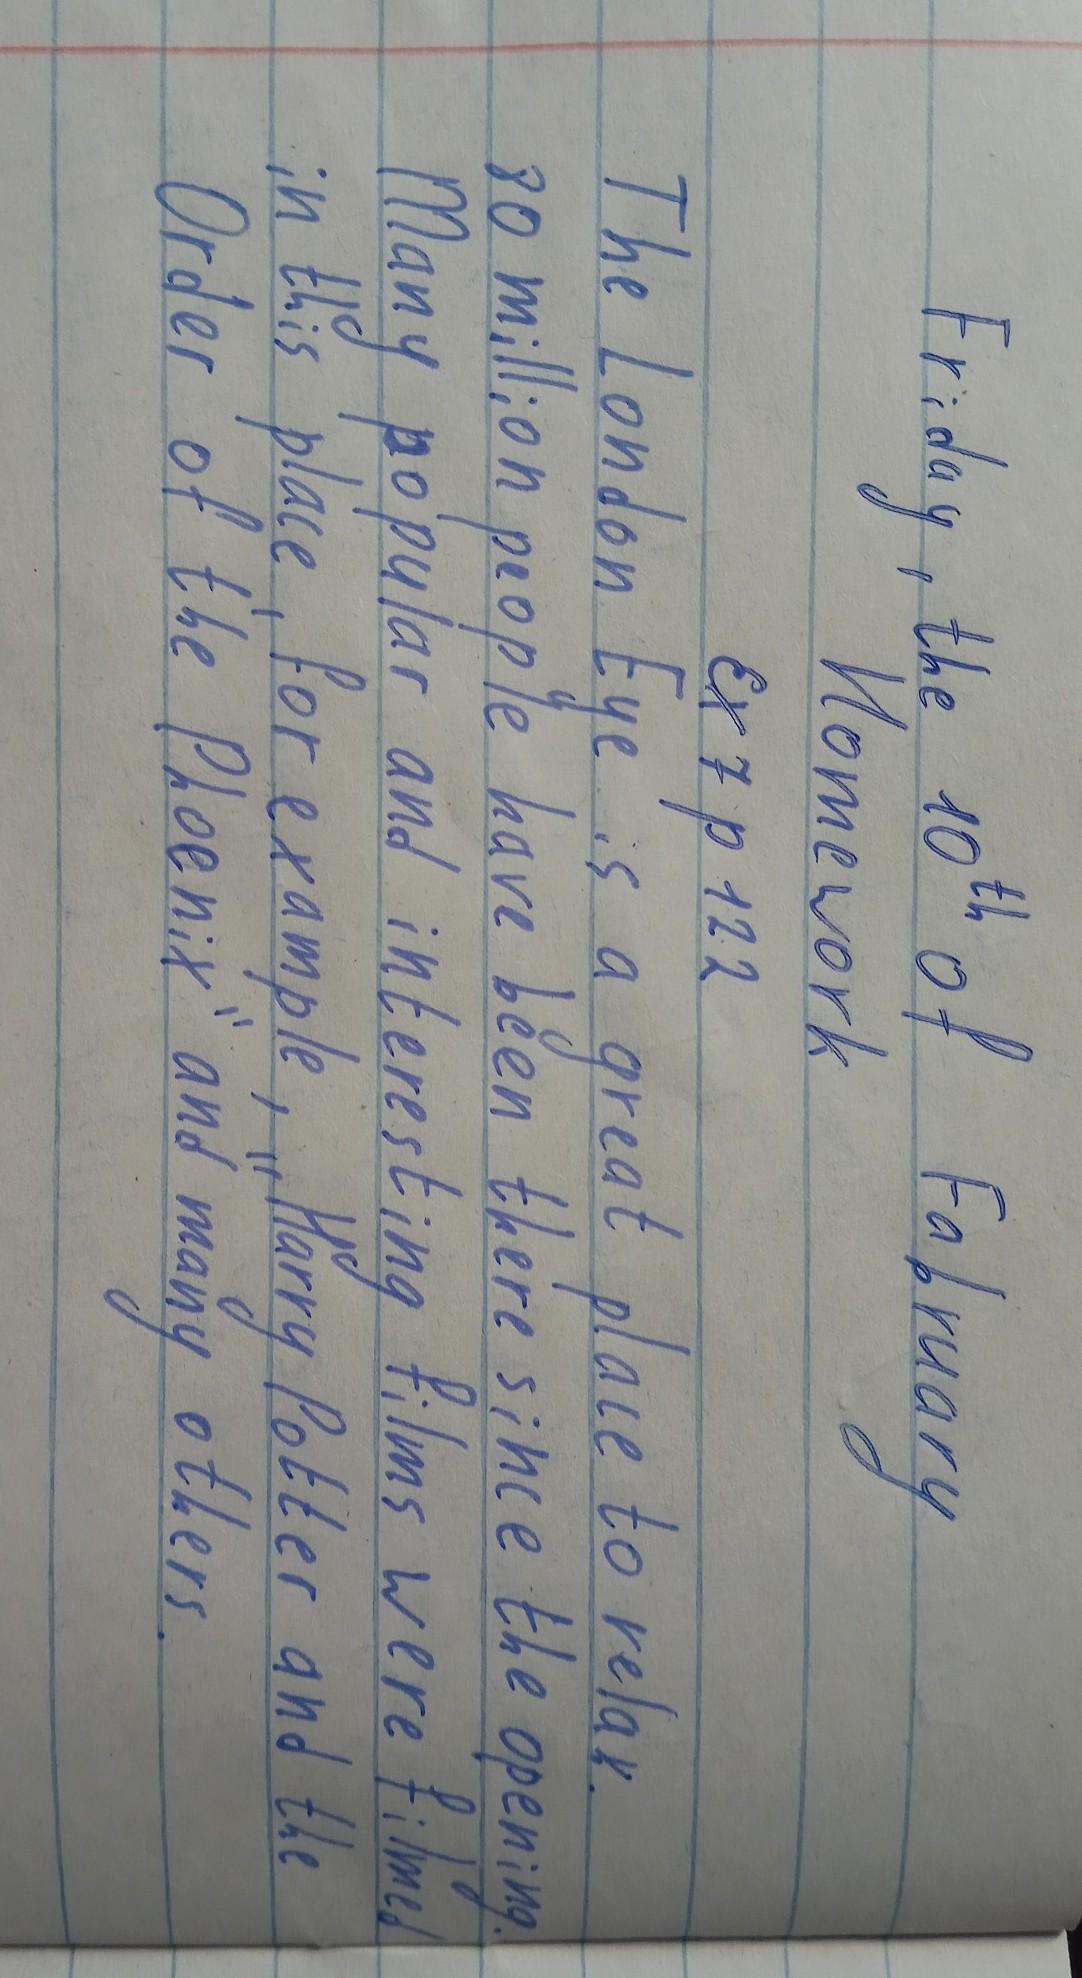 Friday, the 10th of Fabruary
Homework
Ex 7 p 122
The London Eye is a great place to relax.
80 million people have been there since the opening.
Many popular and interesting films were filmed
in this place, for example, "Harry Potter and the
Order of the Phoenix" and many others.